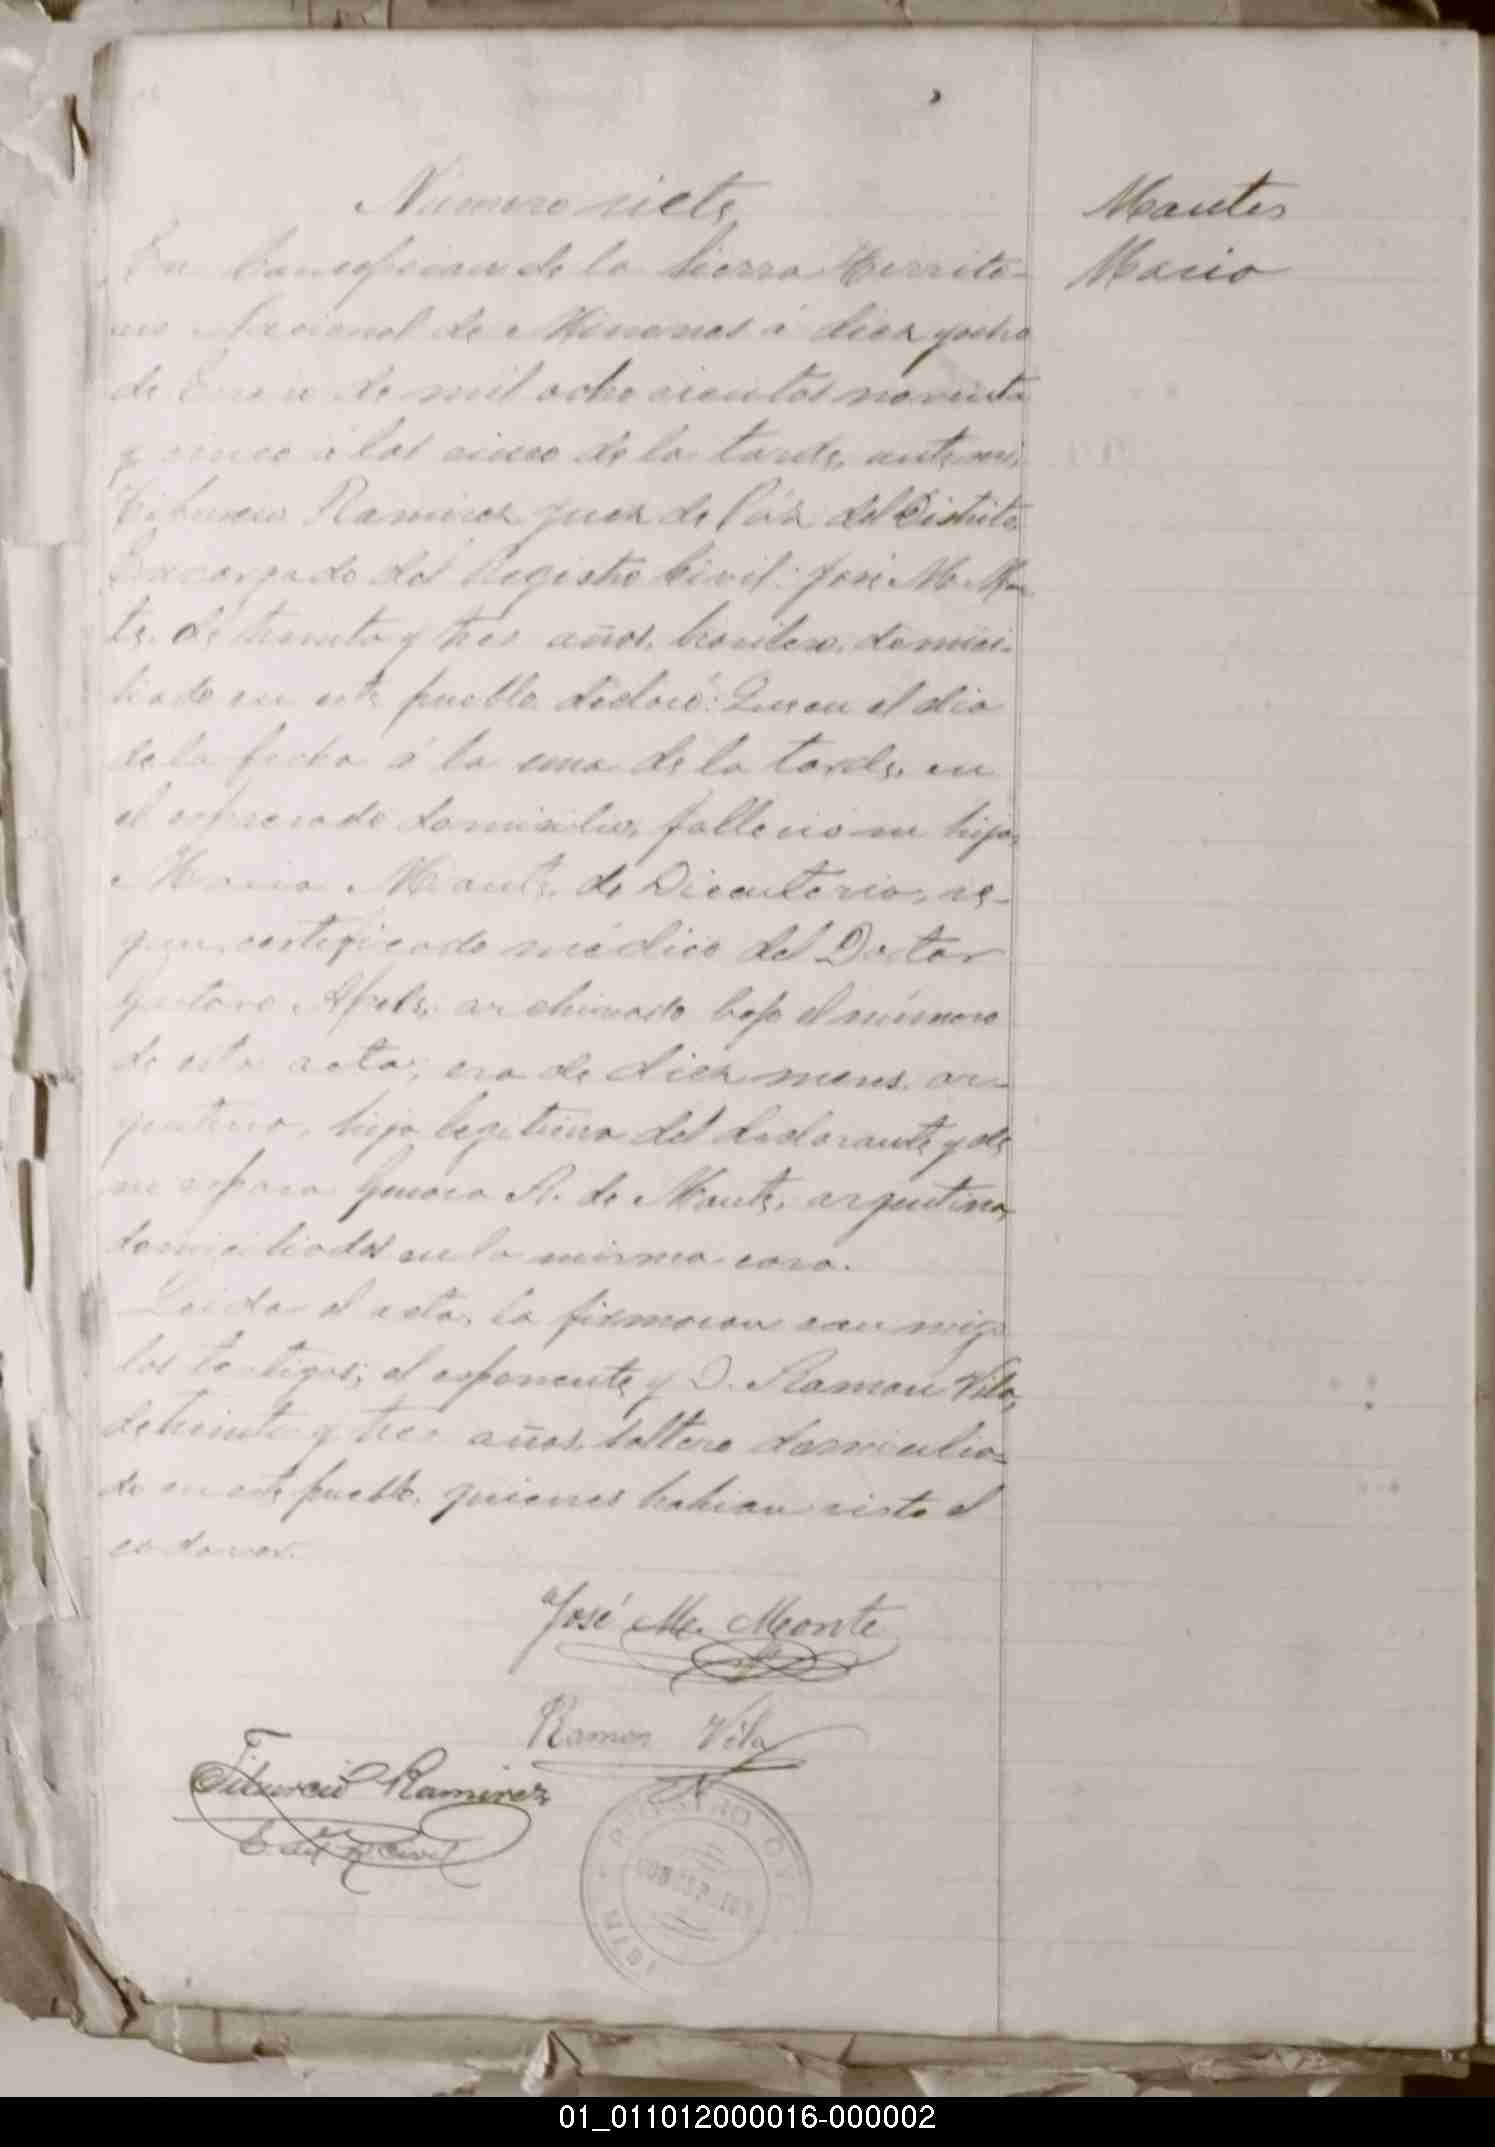 Numero siete
En Concepcion de la Sierra Territo-
rio Nacional de Misiones á diez y ocho
de Enero de mil ochocientos noventa
y cinco á las cinco de la tarde, ante mi,
Tiburcio Ramirez Juez de Páz del Distrito
Encargado del Registro Civil: José M. Mon
te, de treinta y tres años, domici-
liado en este pueblo declaró: Que en el dia
de la fecha á la una de la tarde, en
el espresado domicilio, falleció su hijo,
Mario Monte, de Disenteria, se-
gun certificado médico del Doctor
Gustavo archivado bajo el número
de esta acta; era de diez meses, ar-
gentino, hijo legitimo del declarante y de
su esposa Genara A. de Monte, argentina,
domiciliados en la misma casa.
Leida el acta, la firmaron con migo
los testigos; el esponente y D. Ramon Vila,
de treinta y tres años, soltero domicilia-
do en este pueblo, quienes habian visto el
cadaver.
José M. Monte
Ramon Vila
Tiburcio Ramirez
Montes
Mario
REGISTRO CIVIL
01_011012000016-000002